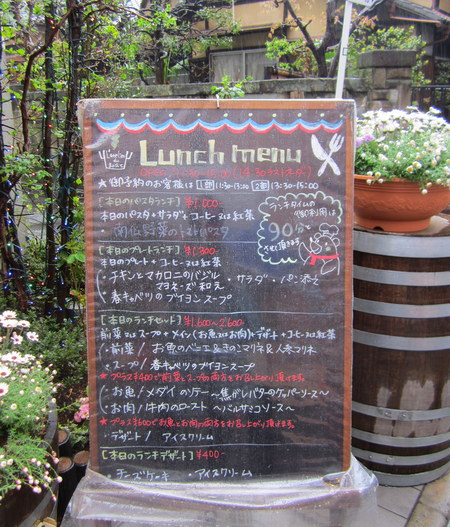 Lunch menu
★御予約のお客様は 1部 11:30-13:20 2部 13:30-15:00
【本日のパスタランチ】 ¥1,000-
本日のパスタ+サラダ+コーヒー又は紅茶
ランチタイムの
90分と
させて頂きます
【本日のプレートランチ】 ¥1,300-
本日のプレート+コーヒー又は紅茶
・チキンとマカロニのバジル ・サラダ・パン添え
マヨネーズ和え
・春キャベツのブイヨンスープ
【本日のランチセット】 ¥1,600~2,600-
前菜又はスープ+メイン(お魚又はお肉)+デザート+コーヒー又は紅茶
・前菜/お魚のベニエ&きのこマリネ&人参マリネ
・スープ/春キャベツのブイヨンスープ
★プラス¥400で前菜とスープの両方をお召し上がり頂けます。
・お魚/メダイのソテー ~焦がしバターのケッパーソース~
・お肉/牛肉のロースト ~バルサミコソース~
★プラス¥600でお魚とお肉の両方をお召し上がり頂けます。
・デザート/アイスクリーム
【本日のランチデザート】 ¥400-
・チーズケーキ ・アイスクリーム